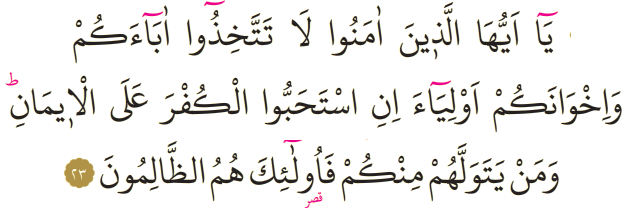 يَٓا اَيُّهَا الَّذ۪ينَ اٰمَنُوا لَا تَتَّخِذُٓوا اٰبَٓاءَكُمْ
وَاِخْوَانَكُمْ اَوْلِيَٓاءَ اِنِ اسْتَحَبُّوا الْكُفْرَ عَلَى الْا۪يمَانِۜ
وَمَنْ يَتَوَلَّهُمْ مِنْكُمْ فَاُو۬لٰٓئِكَ هُمُ الظَّالِمُونَ ﴿٢٣﴾
قصر